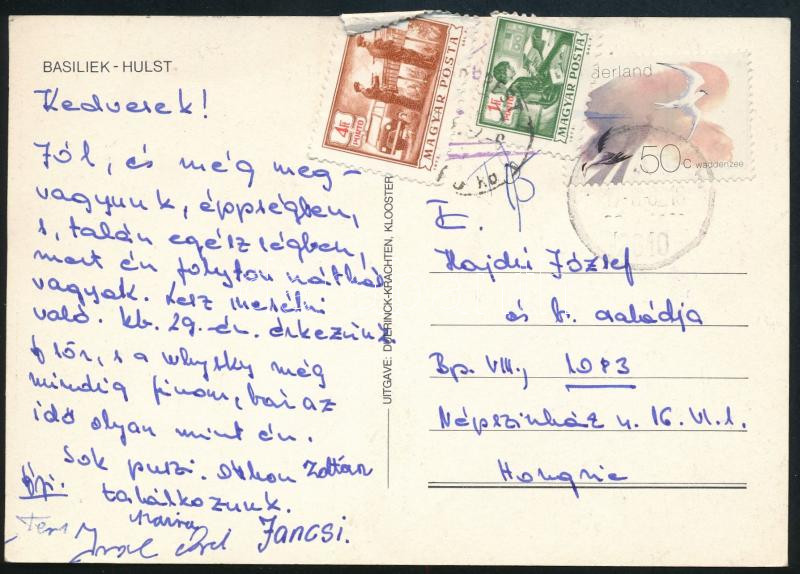 BASILIEK - HULST
Kedvesek!
Jól, és még meg-
vagyunk, épségben,
s, talán egészségben,
mert én folyton náthás
vagyok. Lesz mesélni
való. kb. 29.-én érkezünk
A sör, s a whysky még
mindig finom, bár az
idő olyan mint én.
Sok puszi. Otthon Zoltán
találkozunk.
Jancsi.
UITGAVE: DUERINCK-KRACHTEN, KLOOSTER
4Ft
PORTO
MAGYAR POSTA
1Ft
PORTO
MAGYAR POSTA
derland
50c waddenzee
Hajdú József
és b. családja
Bp. VIII., 1083
Népszínház u. 16. VI. 1.
Hongrie